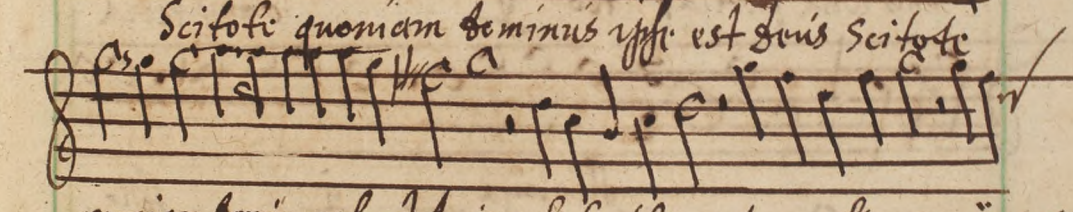 Scitote quoniam dominus ipse est deus Scitote